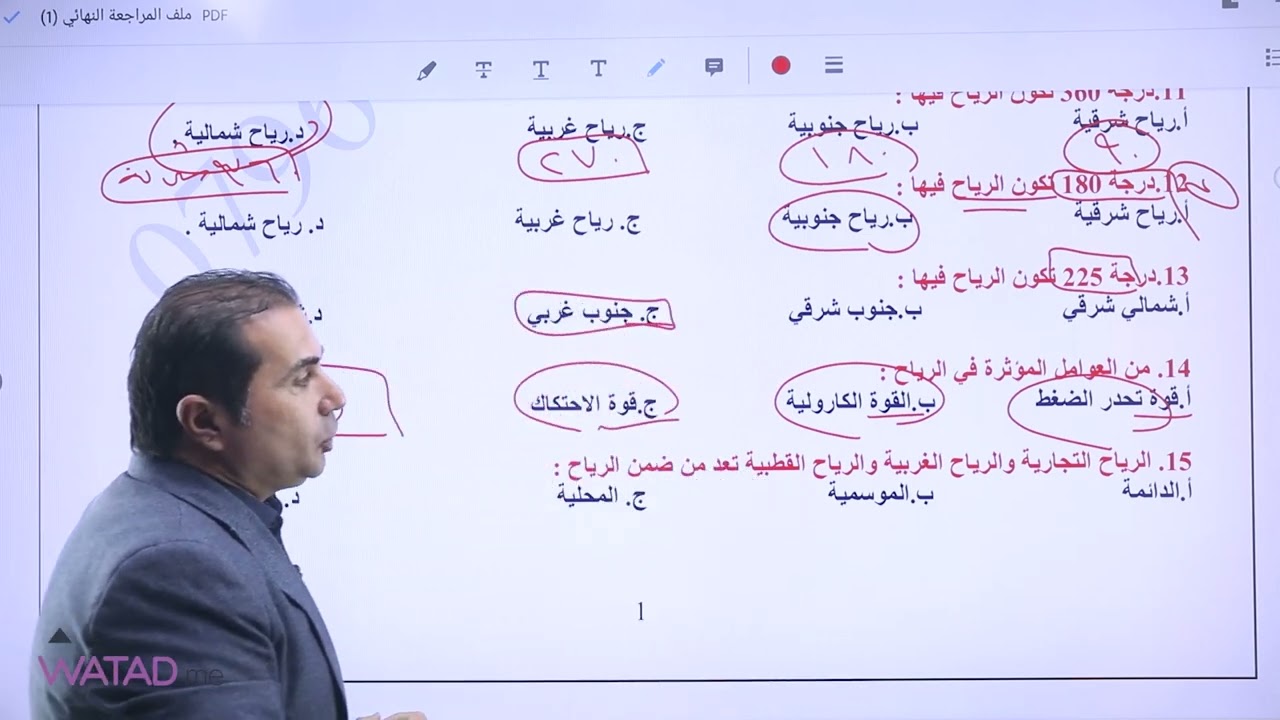 ملف المراجعة النهائي (1) PDF
11.درجة 360 تكون الرياح فيها :
أ.رياح شرقية ب.رياح جنوبية ج.رياح غربية د.رياح شمالية
٩٠ ١٨٠ ٢٧٠
12.درجة 180 تكون الرياح فيها :
أ.رياح شرقية ب.رياح جنوبية ج. رياح غربية د. رياح شمالية .
13.درجة 225 تكون الرياح فيها :
أ.شمالي شرقي ب.جنوب شرقي ج. جنوب غربي د.
14. من العوامل المؤثرة في الرياح :
أ.قوة تحدر الضغط ب.القوة الكارولية ج.قوة الاحتكاك
15. الرياح التجارية والرياح الغربية والرياح القطبية تعد من ضمن الرياح :
أ.الدائمة ب.الموسمية ج. المحلية د.
1
WATAD.me
0796